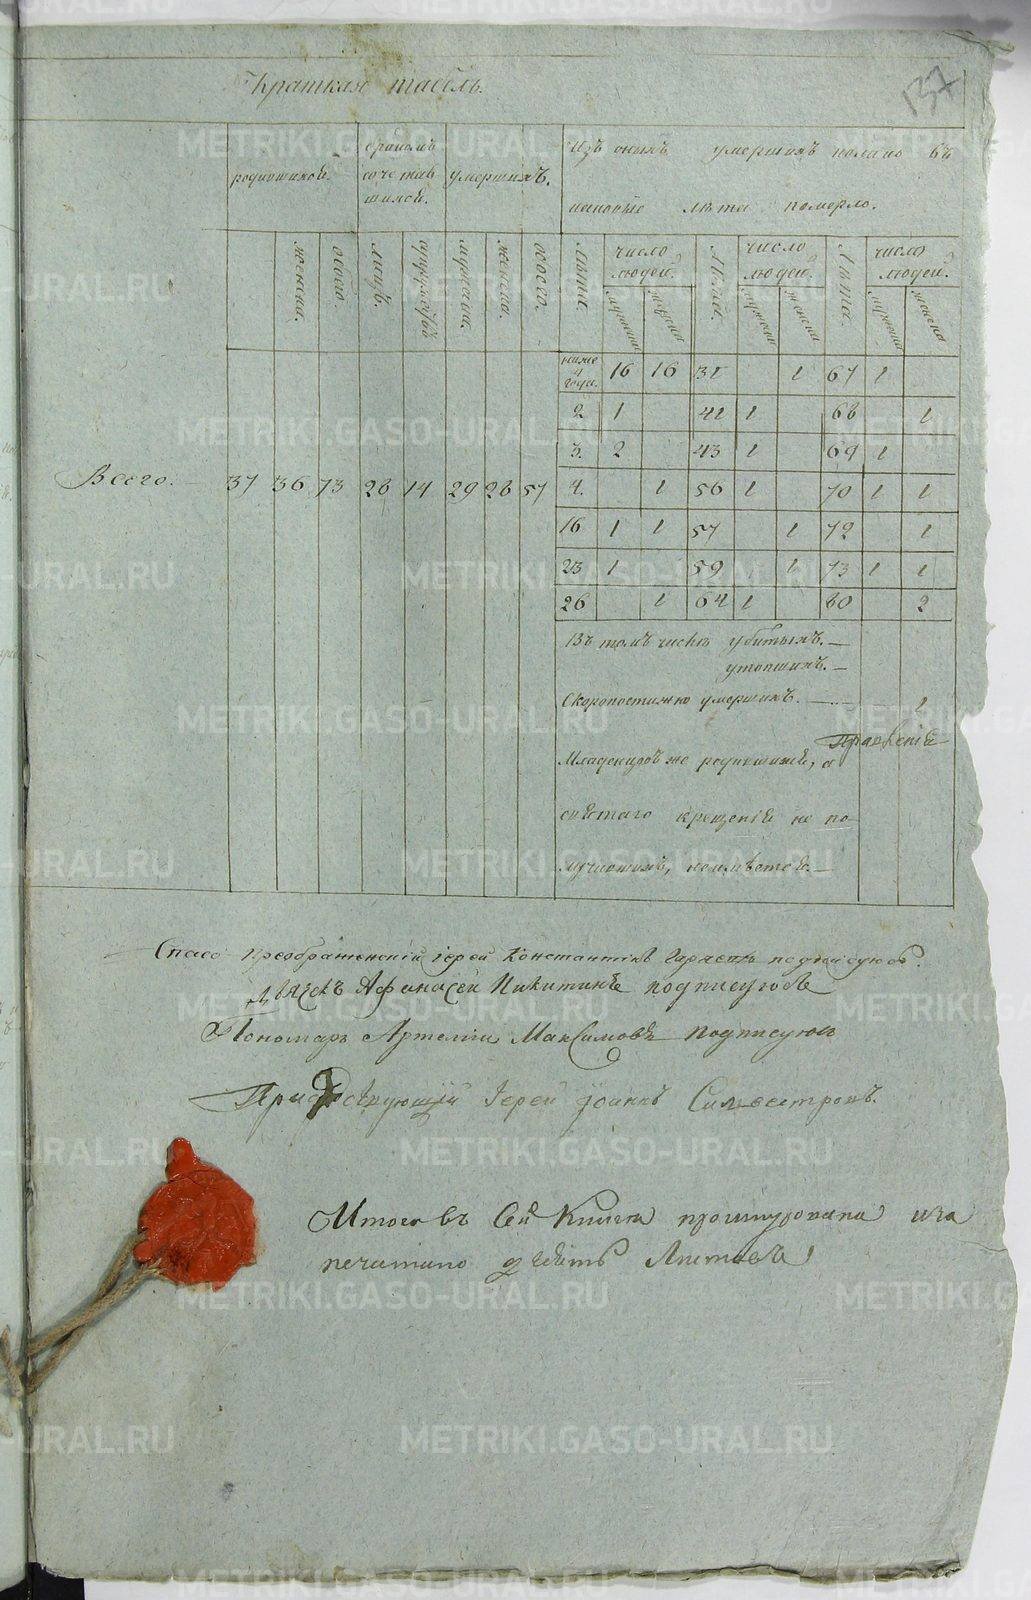 137
Краткая табель.
родившихся.
бракомъ сочетавшихся.
умершихъ.
Изъ онихъ умершихъ колико въ
каковые лѣта померло.
женска.
обоего.
лицъ.
супружествъ
мужеска.
женска.
обоего.
Лѣта.
число людей.
мужеска
женска
Лѣта.
число людей.
мужеска
женска
Лѣта.
число людей.
мужеска
женска
ниже 1 года. 16 16 31 1 67 1
2 1 41 1 68 1
3. 2 43 1 69 1
Всего. 37 36 73 28 14 29 28 57
4. 1 56 1 70 1 1
16 1 1 57 1 72 1
23 1 59 1 73 1 1
26 1 64 1 80 2
Въ томъ числѣ убитыхъ.—
утопшихъ.—
Скоропостижно умершихъ. — 2
Младенцовъ же родившихся, а
святаго крещенія не по-
лучившихъ, неимѣется.—
Спасо Преображенскій іерей Константинъ подписуюсь.
Дьячекъ Афанасей Никитинъ подписуюсь
Пономарь Артемій Максимовъ подписуюсь
Присутствующій Іерей Іоаннъ Силвестровъ.
Итого въ Сей Книги прошнурована иза
печатано девять Листовъ
METRIKI.GASO-URAL.RU